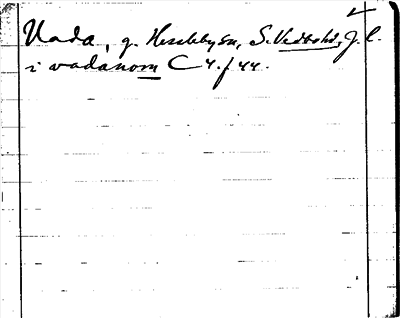 Vada, g. Hesslebysn, S. Vedbohd, J. l.
i vadanom C 4. f 44.